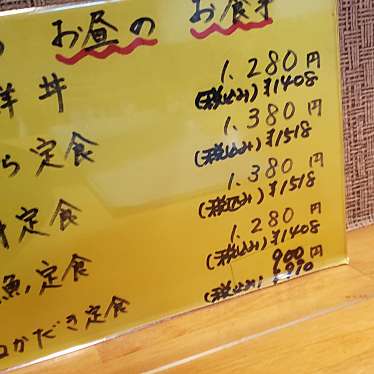 お昼のお食事
洋丼 1,280円
(税込み)¥1408
ら定食 1,380円
(税込み)¥1518
定食 1,380円
(税込み)¥1518
魚定食 1,280円
(税込み)¥1408
かだき定食 900円
(税込み)¥990